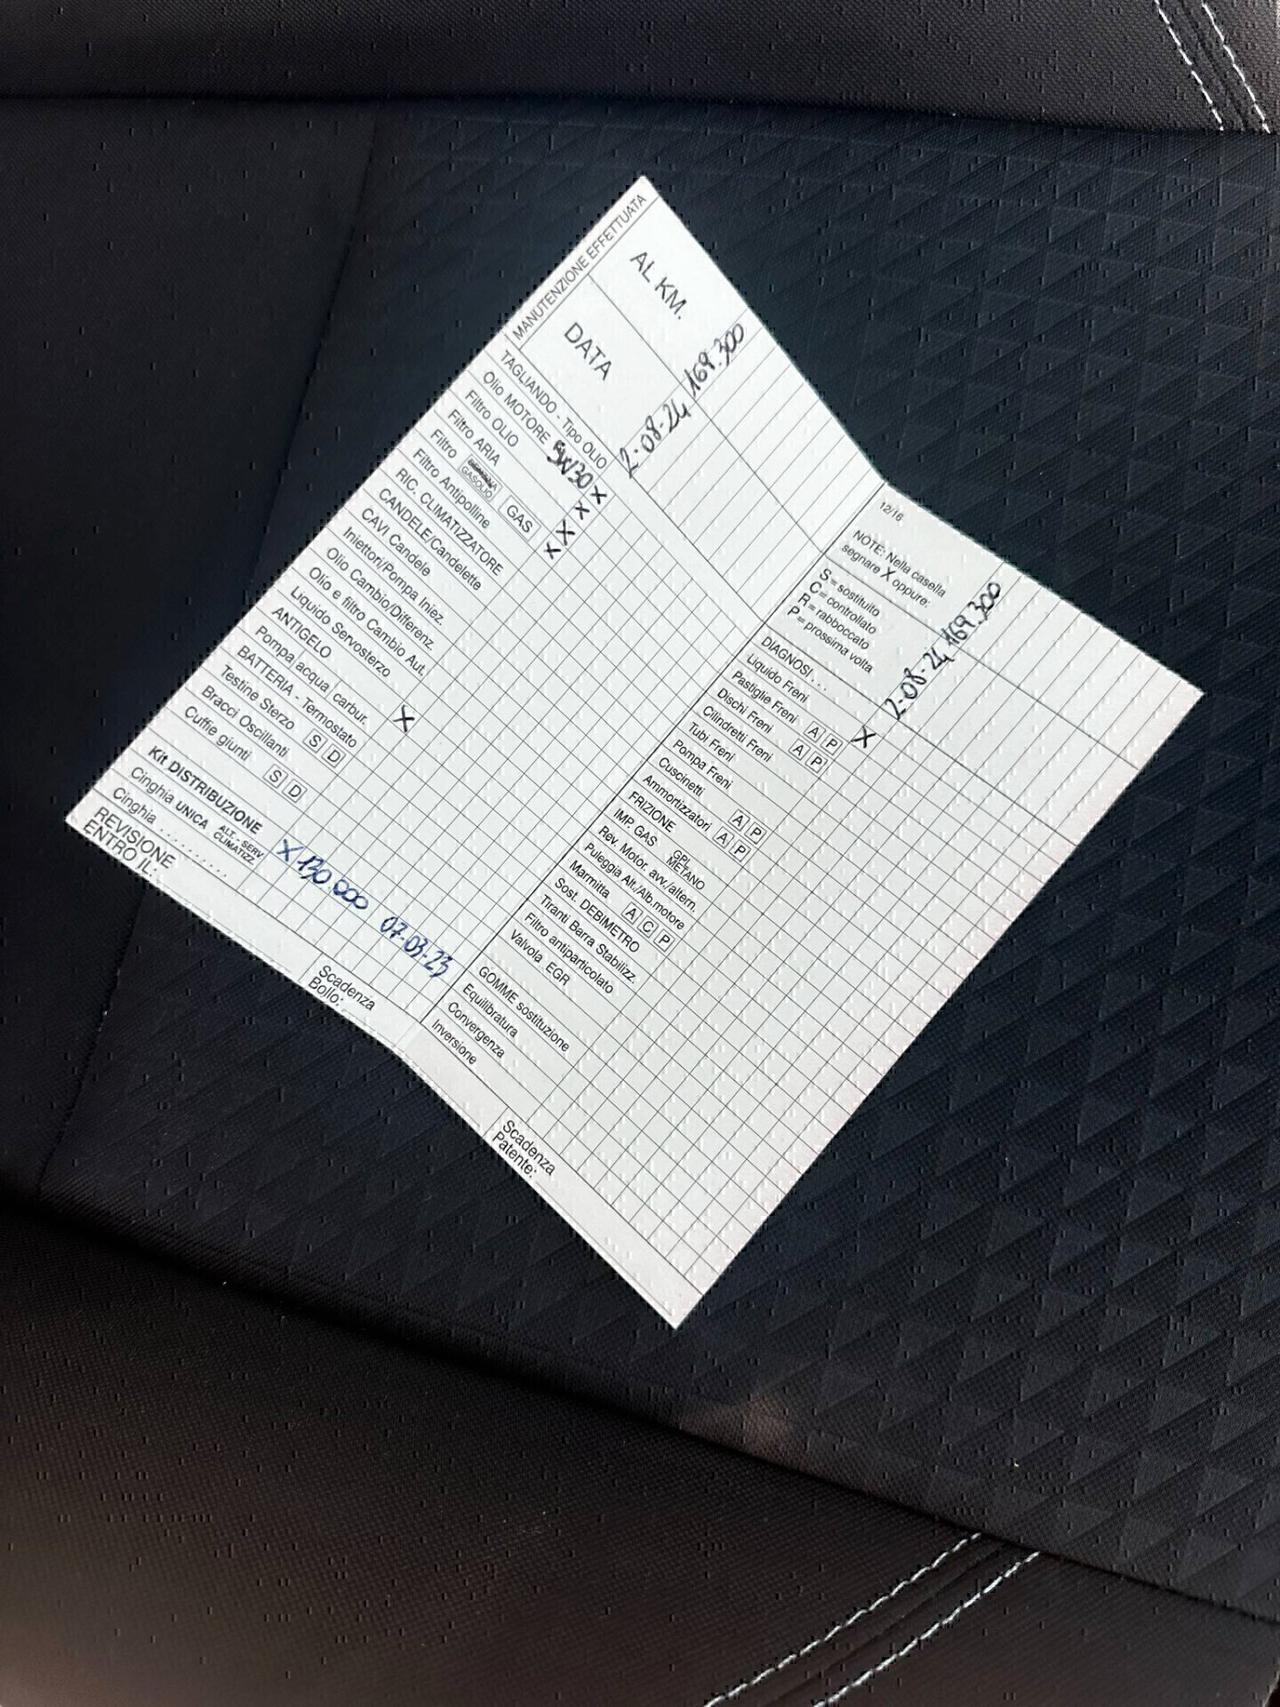 MANUTENZIONE EFFETTUATA
AL KM.
DATA
2-08-24 169.300
TAGLIANDO - Tipo OLIO
Olio MOTORE 5W30 X
Filtro OLIO X
Filtro ARIA X
Filtro GASOLIO GAS X
Filtro Antipolline
RIC. CLIMATIZZATORE
CANDELE/Candelette
CAVI Candele
Iniettori/Pompa Iniez.
Olio Cambio/Differenz.
Olio e filtro Cambio Aut.
Liquido Servosterzo
ANTIGELO
Pompa acqua carbur. X
BATTERIA - Termostato
Testine Sterzo S D
Bracci Oscillanti
Cuffie giunti S D
Kit DISTRIBUZIONE X 130 000 07-03-23
Cinghia UNICA ALT. SERV. CLIMATIZZ.
Cinghia ..........
REVISIONE
ENTRO IL:
Scadenza
Bollo:
12/16
NOTE: Nella casella
segnare X oppure:
S = sostituito
C = controllato
R = rabboccato
P = prossima volta
2-08-24 169.300
DIAGNOSI . . . X
Liquido Freni
Pastiglie Freni A P
Dischi Freni A P
Cilindretti Freni
Tubi Freni
Pompa Freni
Cuscinetti A P
Ammortizzatori A P
FRIZIONE
IMP GAS GPL METANO
Rev. Motor. avv./altern.
Puleggia Alt./Alb.motore
Marmitta A C P
Sost. DEBIMETRO
Tiranti Barra Stabilizz.
Filtro antiparticolato
Valvola EGR
GOMME sostituzione
Equilibratura
Convergenza
Inversione
Scadenza
Patente: